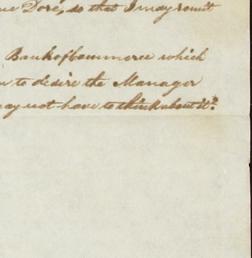 ue Dore, so that I may remit
Bank of Commerce which
n to desire the Manager
may not have to think about it."